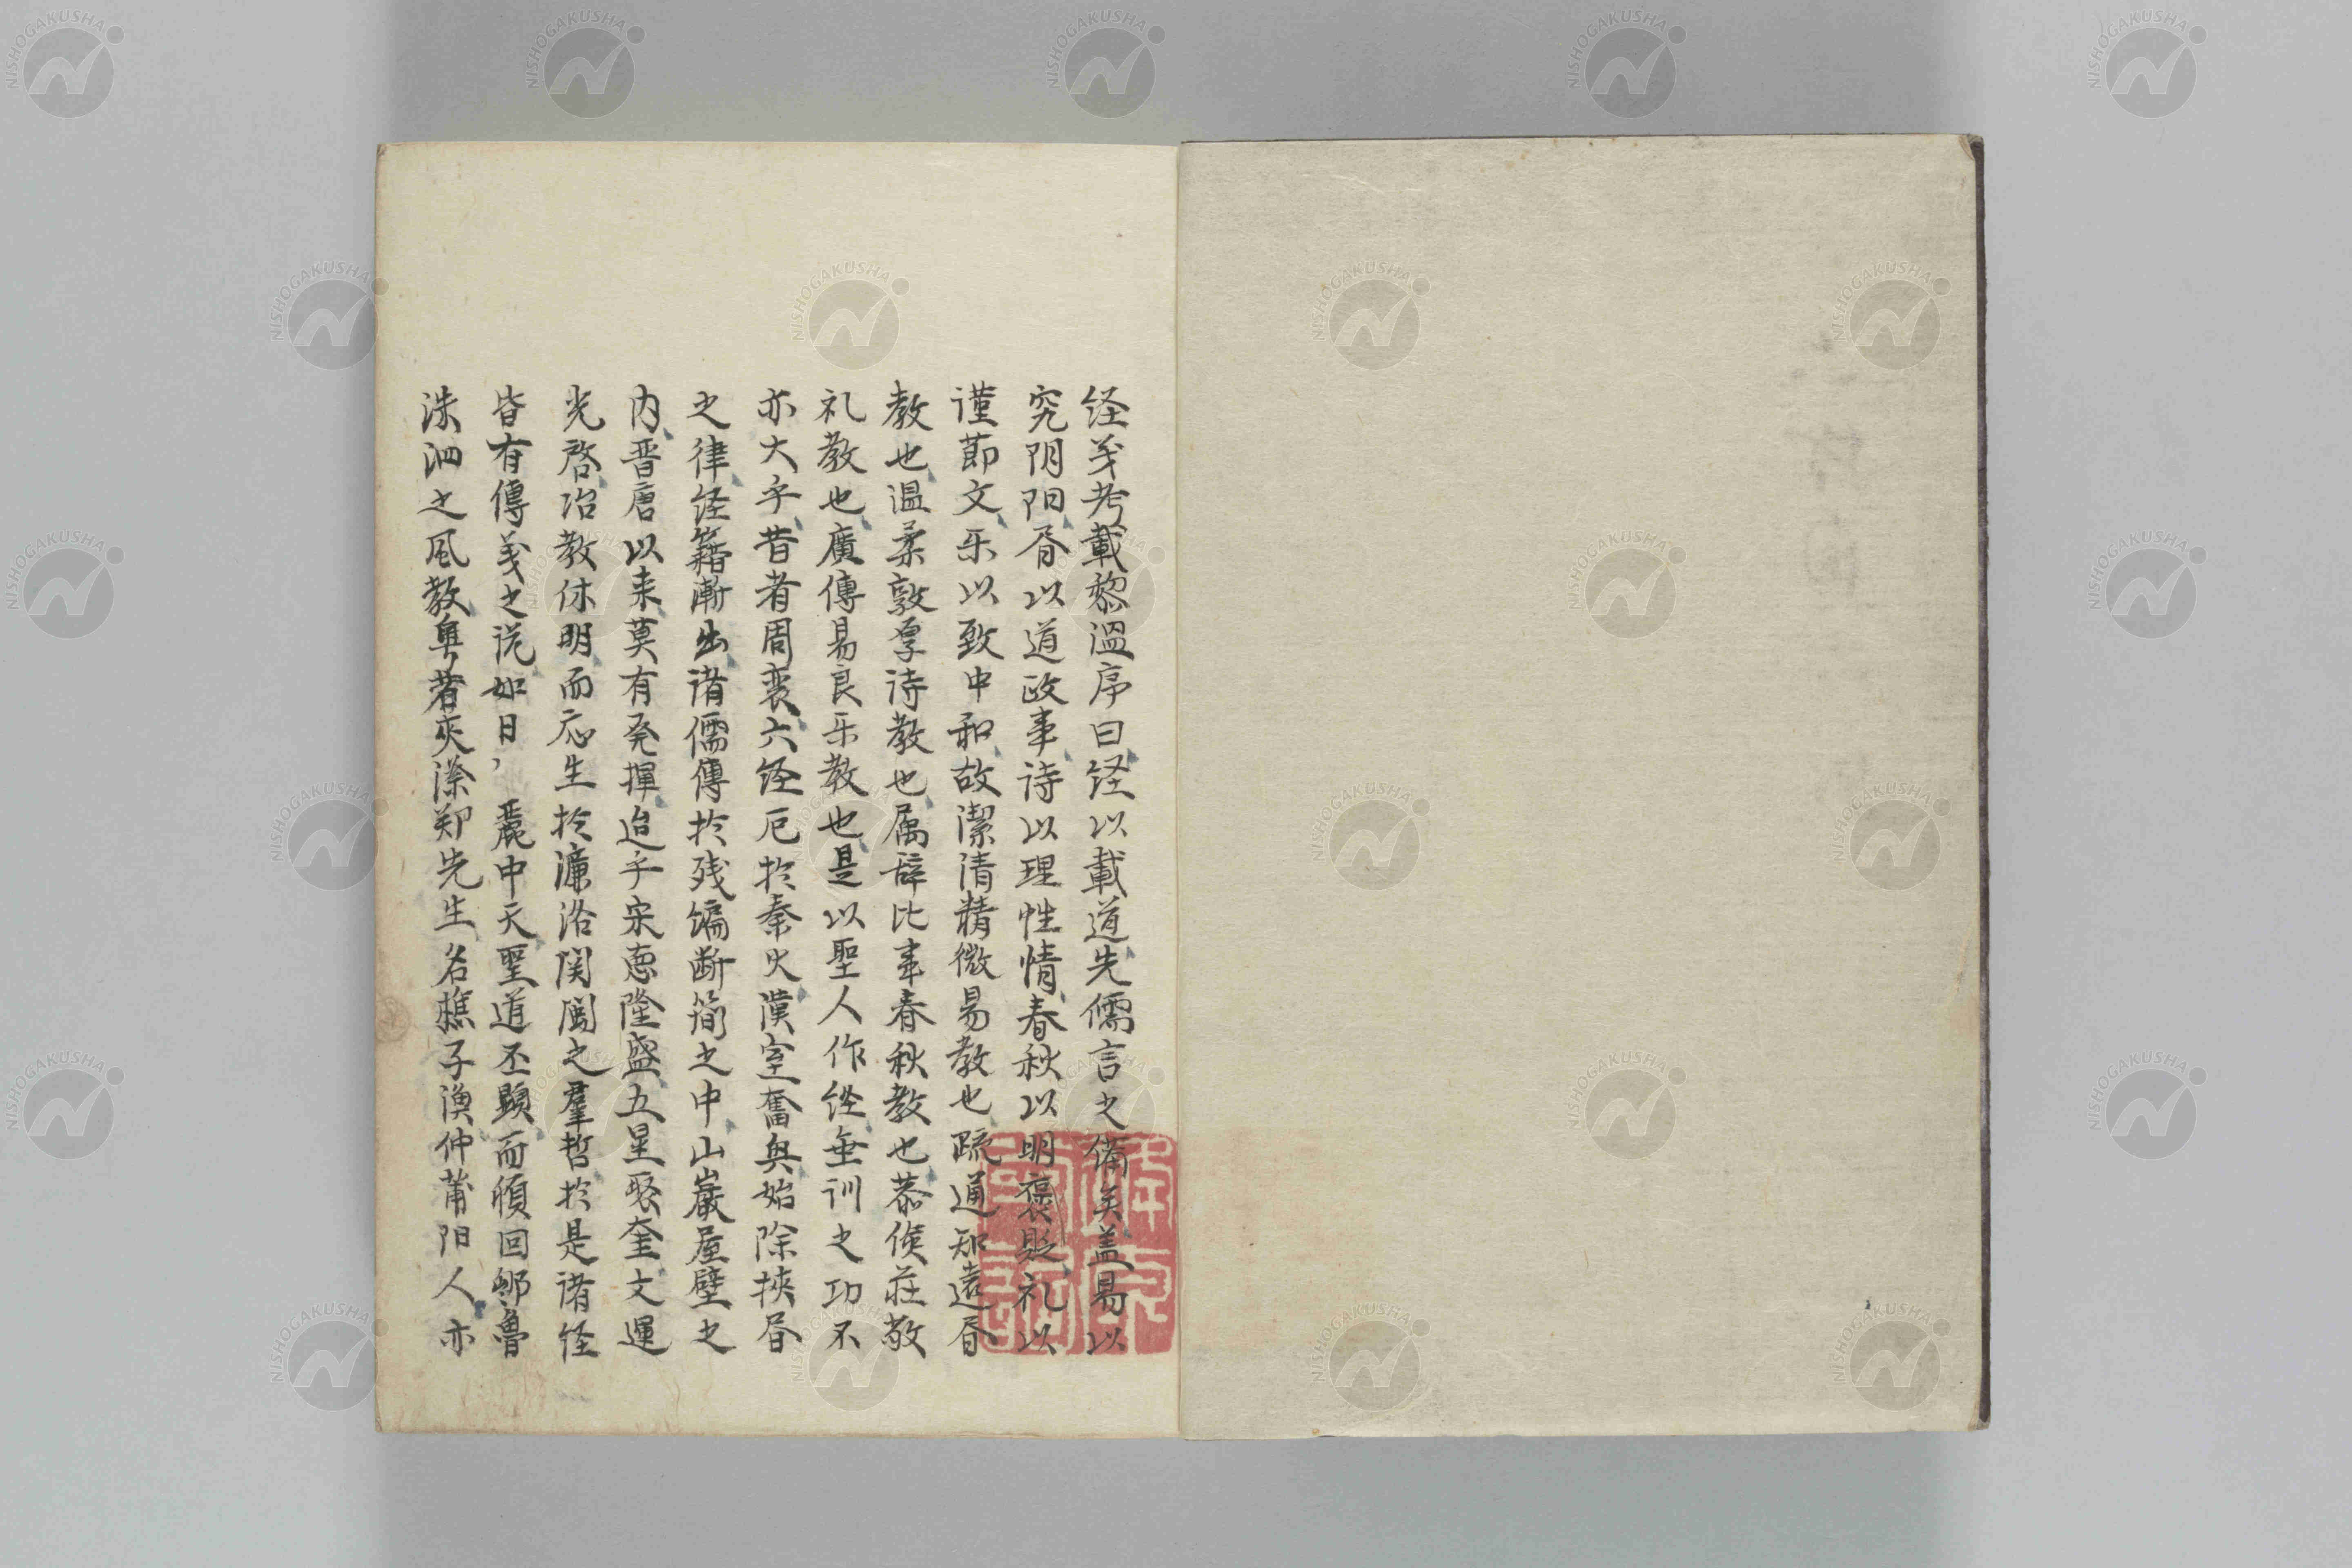 经义考載黎温序曰经以載道先儒言之備矣盖易以
究阴阳昏以道政事诗以理性情春秋以明褒貶礼以
谨莭文乐以致中和故潔清精微易教也疏通知遠昏
教也温柔敦厚诗教也属辞比事春秋教也恭儉莊敬
礼教也廣傳易良乐教也是以聖人作经垂训之功不
亦大乎昔者周衰六经厄扵秦火漢室奮兴始除挾昏
之律经籍漸出诸儒傳扵残编断简之中山巖屋壁之
内晋唐以来莫有発揮迨乎宋悳隆盛五星聚奎文運
光啓治教休明而応生扵濂洛関闽之羣哲扵是诸经
皆有傳义之说如日麗中天聖道丕顕而頫回邹魯
洙泗之风教兴者夾漈郑先生名樵子漁仲莆阳人亦
NISHOGAKUSHA